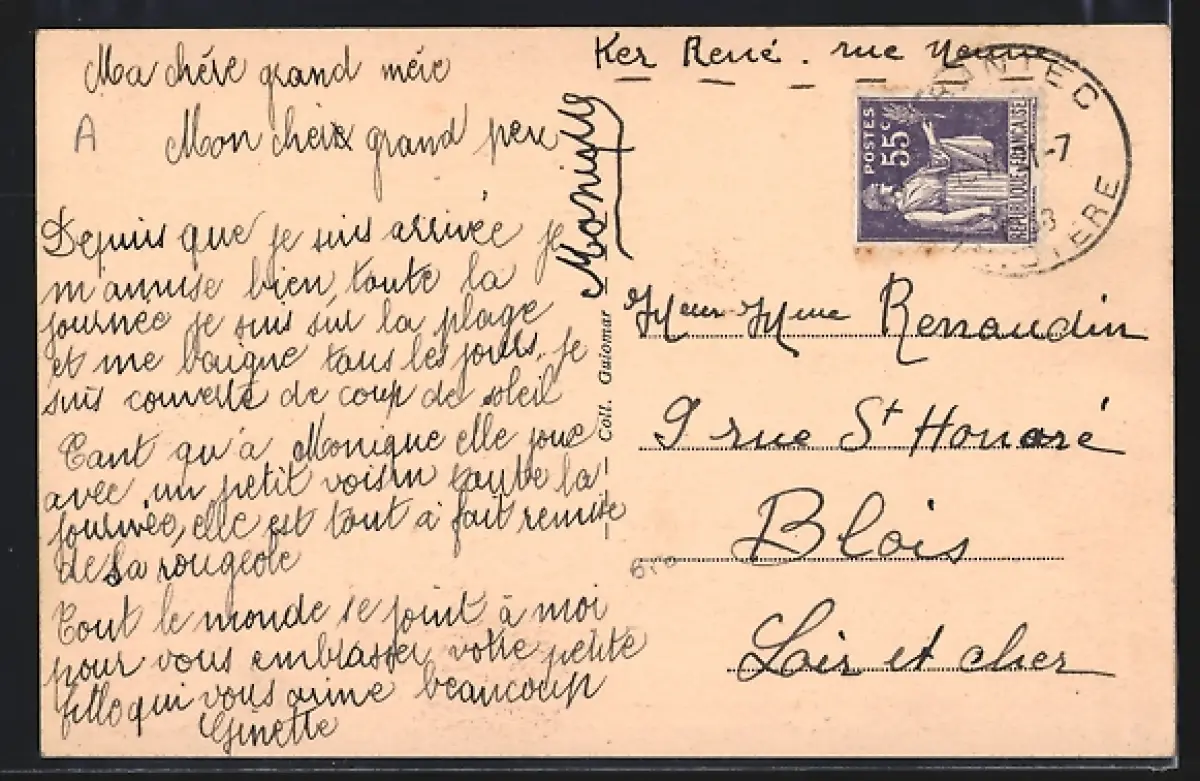 Ma chére grand mére
A Mon cheix grand pere
Depuis que je suis arrivée je
m'amuse bien, toute la
journée je suis sur la plage
et me baigne tous les jours, je
suis couverte de coup de soleil
Tant qu'à Monique elle joue
avec un petit voisin toute la
journée, elle est tout à fait remise
de sa rougeole
Tout le monde se joint à moi
pour vous embrasser votre petite
fille qui vous aime beaucoup
Ginette
Monique
Coll. Guiomar
Ker René. rue
POSTES
55c
REPUBLIQUE FRANÇAISE
Meur Mme Renaudin
9 rue St Honoré
Blois
Loir et cher